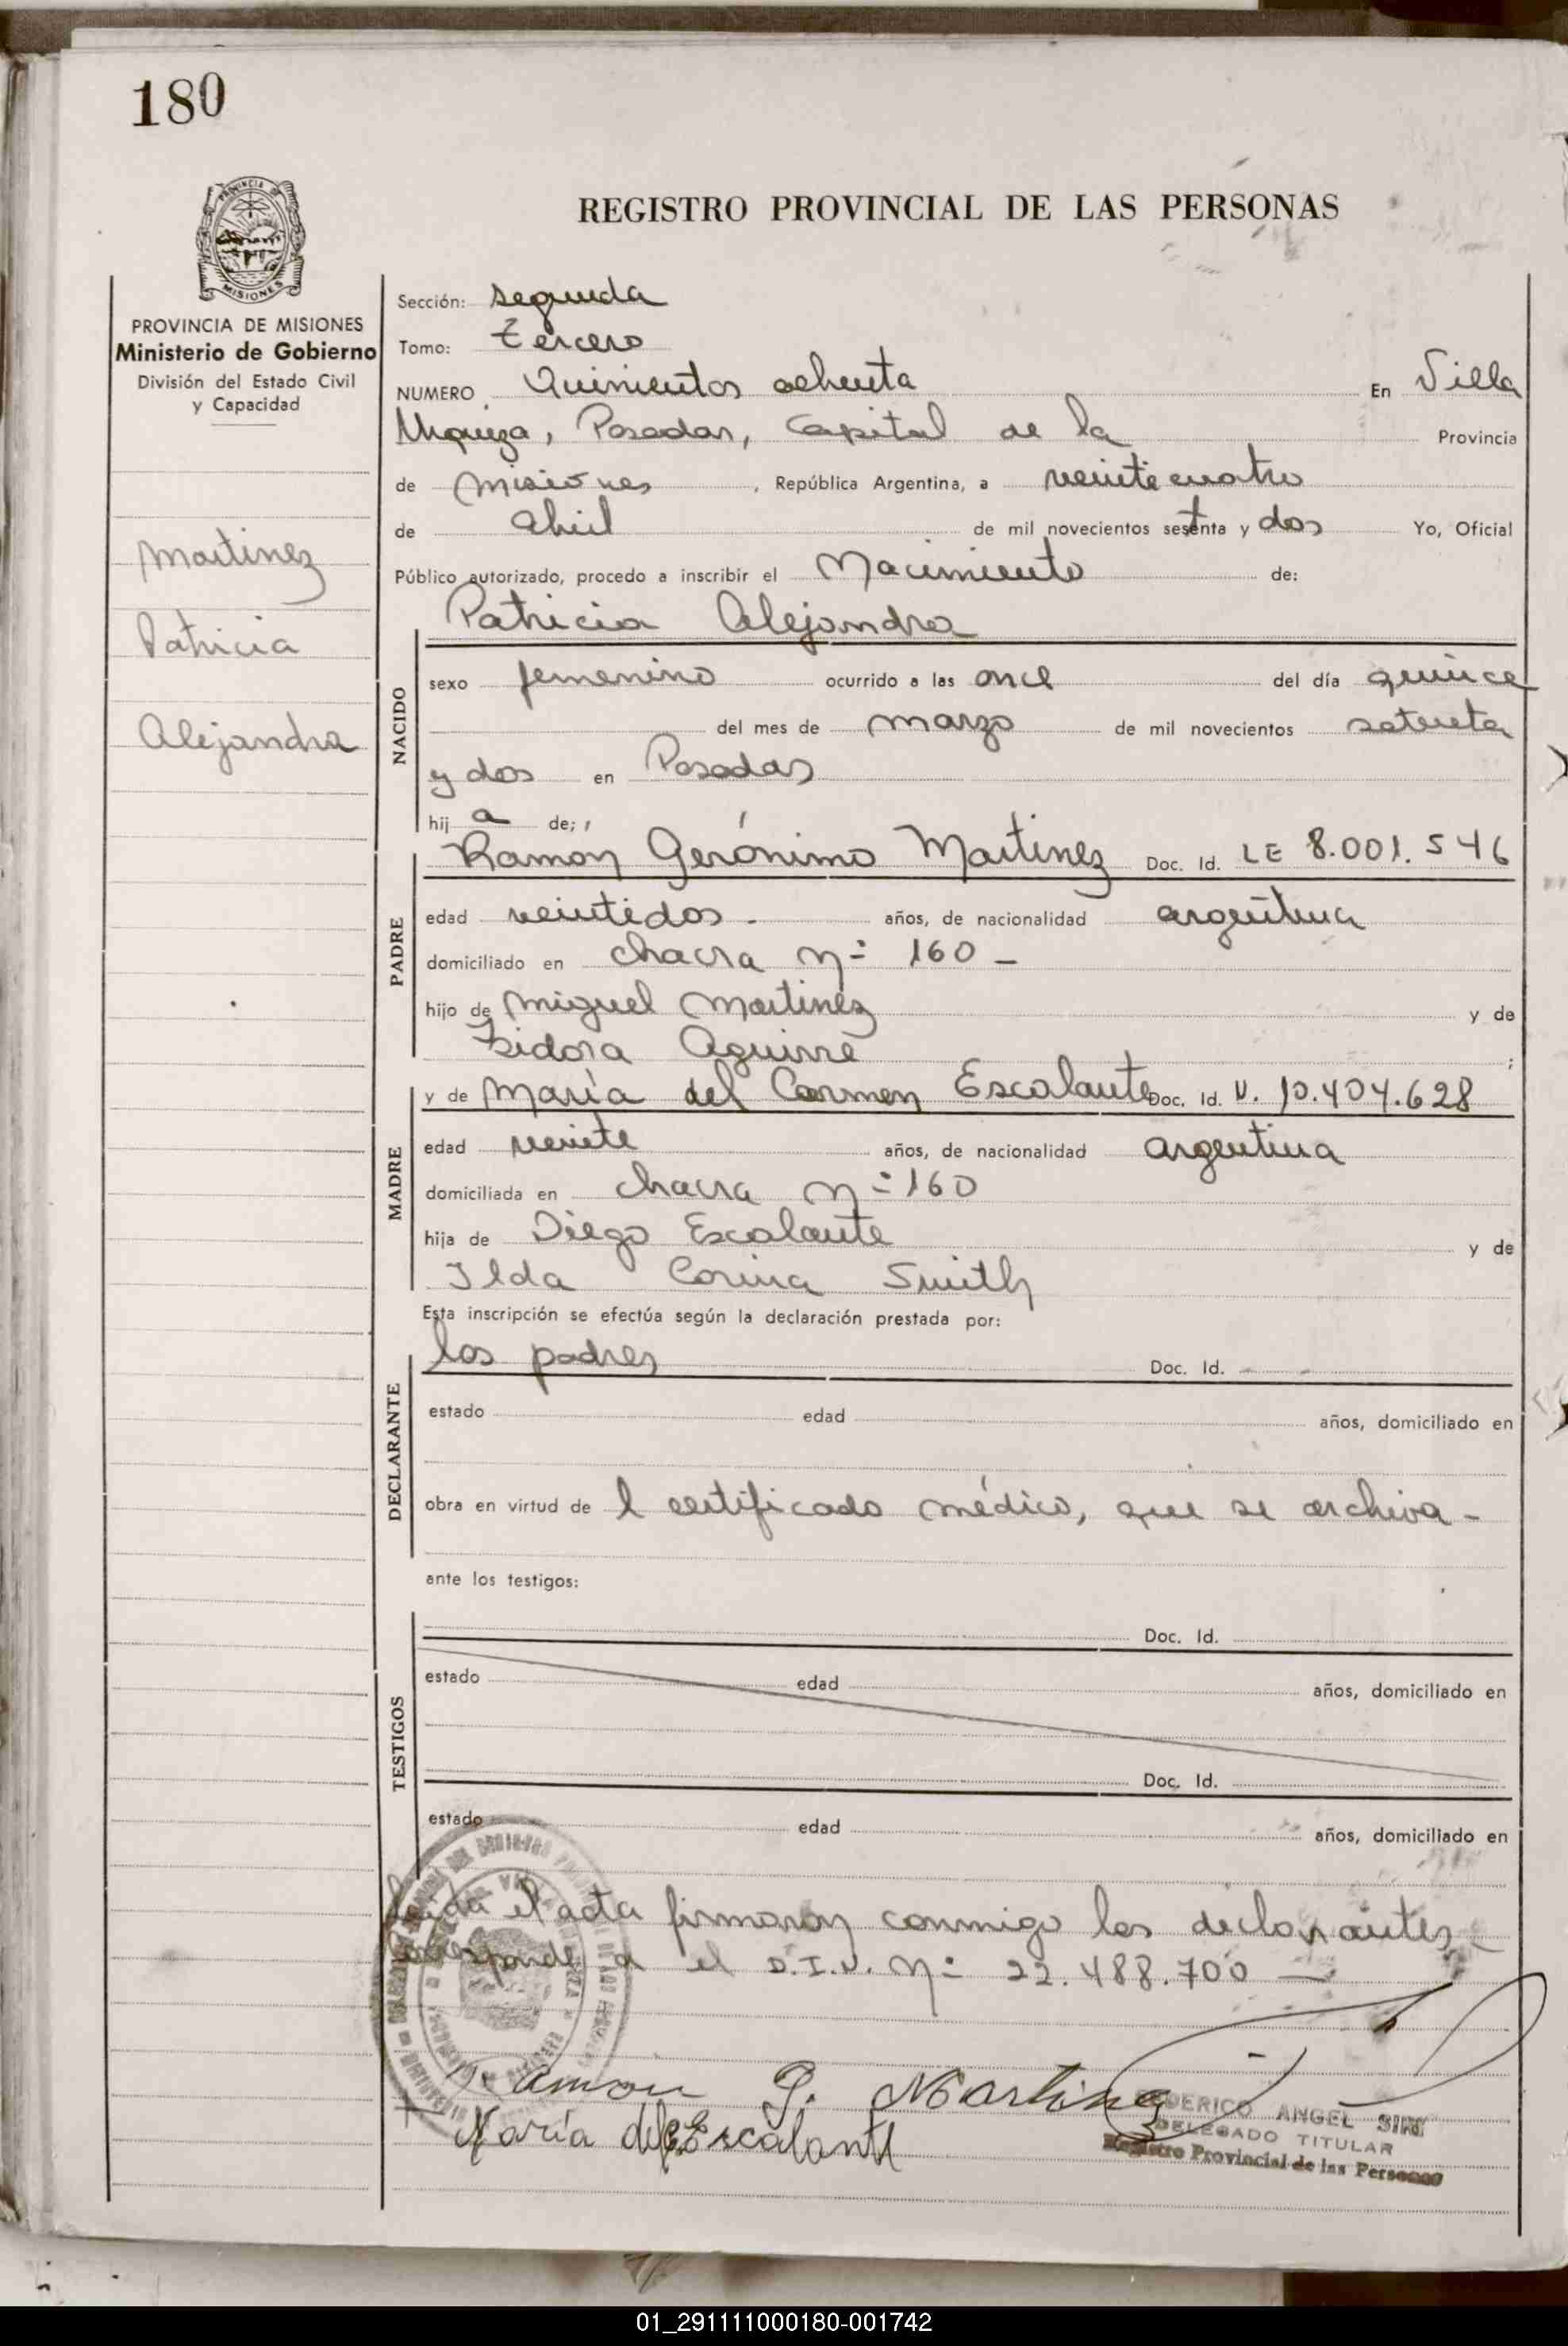 180
REGISTRO PROVINCIAL DE LAS PERSONAS
PROVINCIA DE MISIONES
Ministerio de Gobierno
División del Estado Civil
y Capacidad
Martinez
Patricia
Alejandra
Sección: segunda
Tomo: tercero
NUMERO Quinientos ochenta En Villa
Urquiza, Posadas, Capital de la Provincia
de Misiones, República Argentina, a veinticuatro
de abril de mil novecientos setenta y dos Yo, Oficial
Público autorizado, procedo a inscribir el Nacimiento de:
Patricia Alejandra
NACIDO
sexo femenino ocurrido a las once del día quince
del mes de marzo de mil novecientos setenta
y dos en Posadas
hij a de;
PADRE
Ramon Gerónimo Martinez Doc. Id. LE 8.001.546
edad veintidos - años, de nacionalidad argentina
domiciliado en chacra nº 160 -
hijo de Miguel Martinez y de
Isidora Aguirre ;
MADRE
y de María del Carmen Escalante Doc. Id. V. 10.404.628
edad veinte años, de nacionalidad argentina
domiciliada en chacra nº 160
hija de Diego Escalante y de
Ilda Corina Smith
Esta inscripción se efectúa según la declaración prestada por:
DECLARANTE
los padres Doc. Id. -
estado edad años, domiciliado en
obra en virtud de l certificado médico, que se archiva -
ante los testigos:
TESTIGOS
Doc. Id.
estado edad años, domiciliado en
Doc. Id.
estado edad años, domiciliado en
Leida el acta firmaron conmigo los declarantes -
Corresponde a el D.I.N. Nº 22.488.700 —
Ramon G. Martinez
María del C Escalante
DERICO ANGEL
DELEGADO TITULAR
Registro Provincial de las Personas
01_291111000180-001742